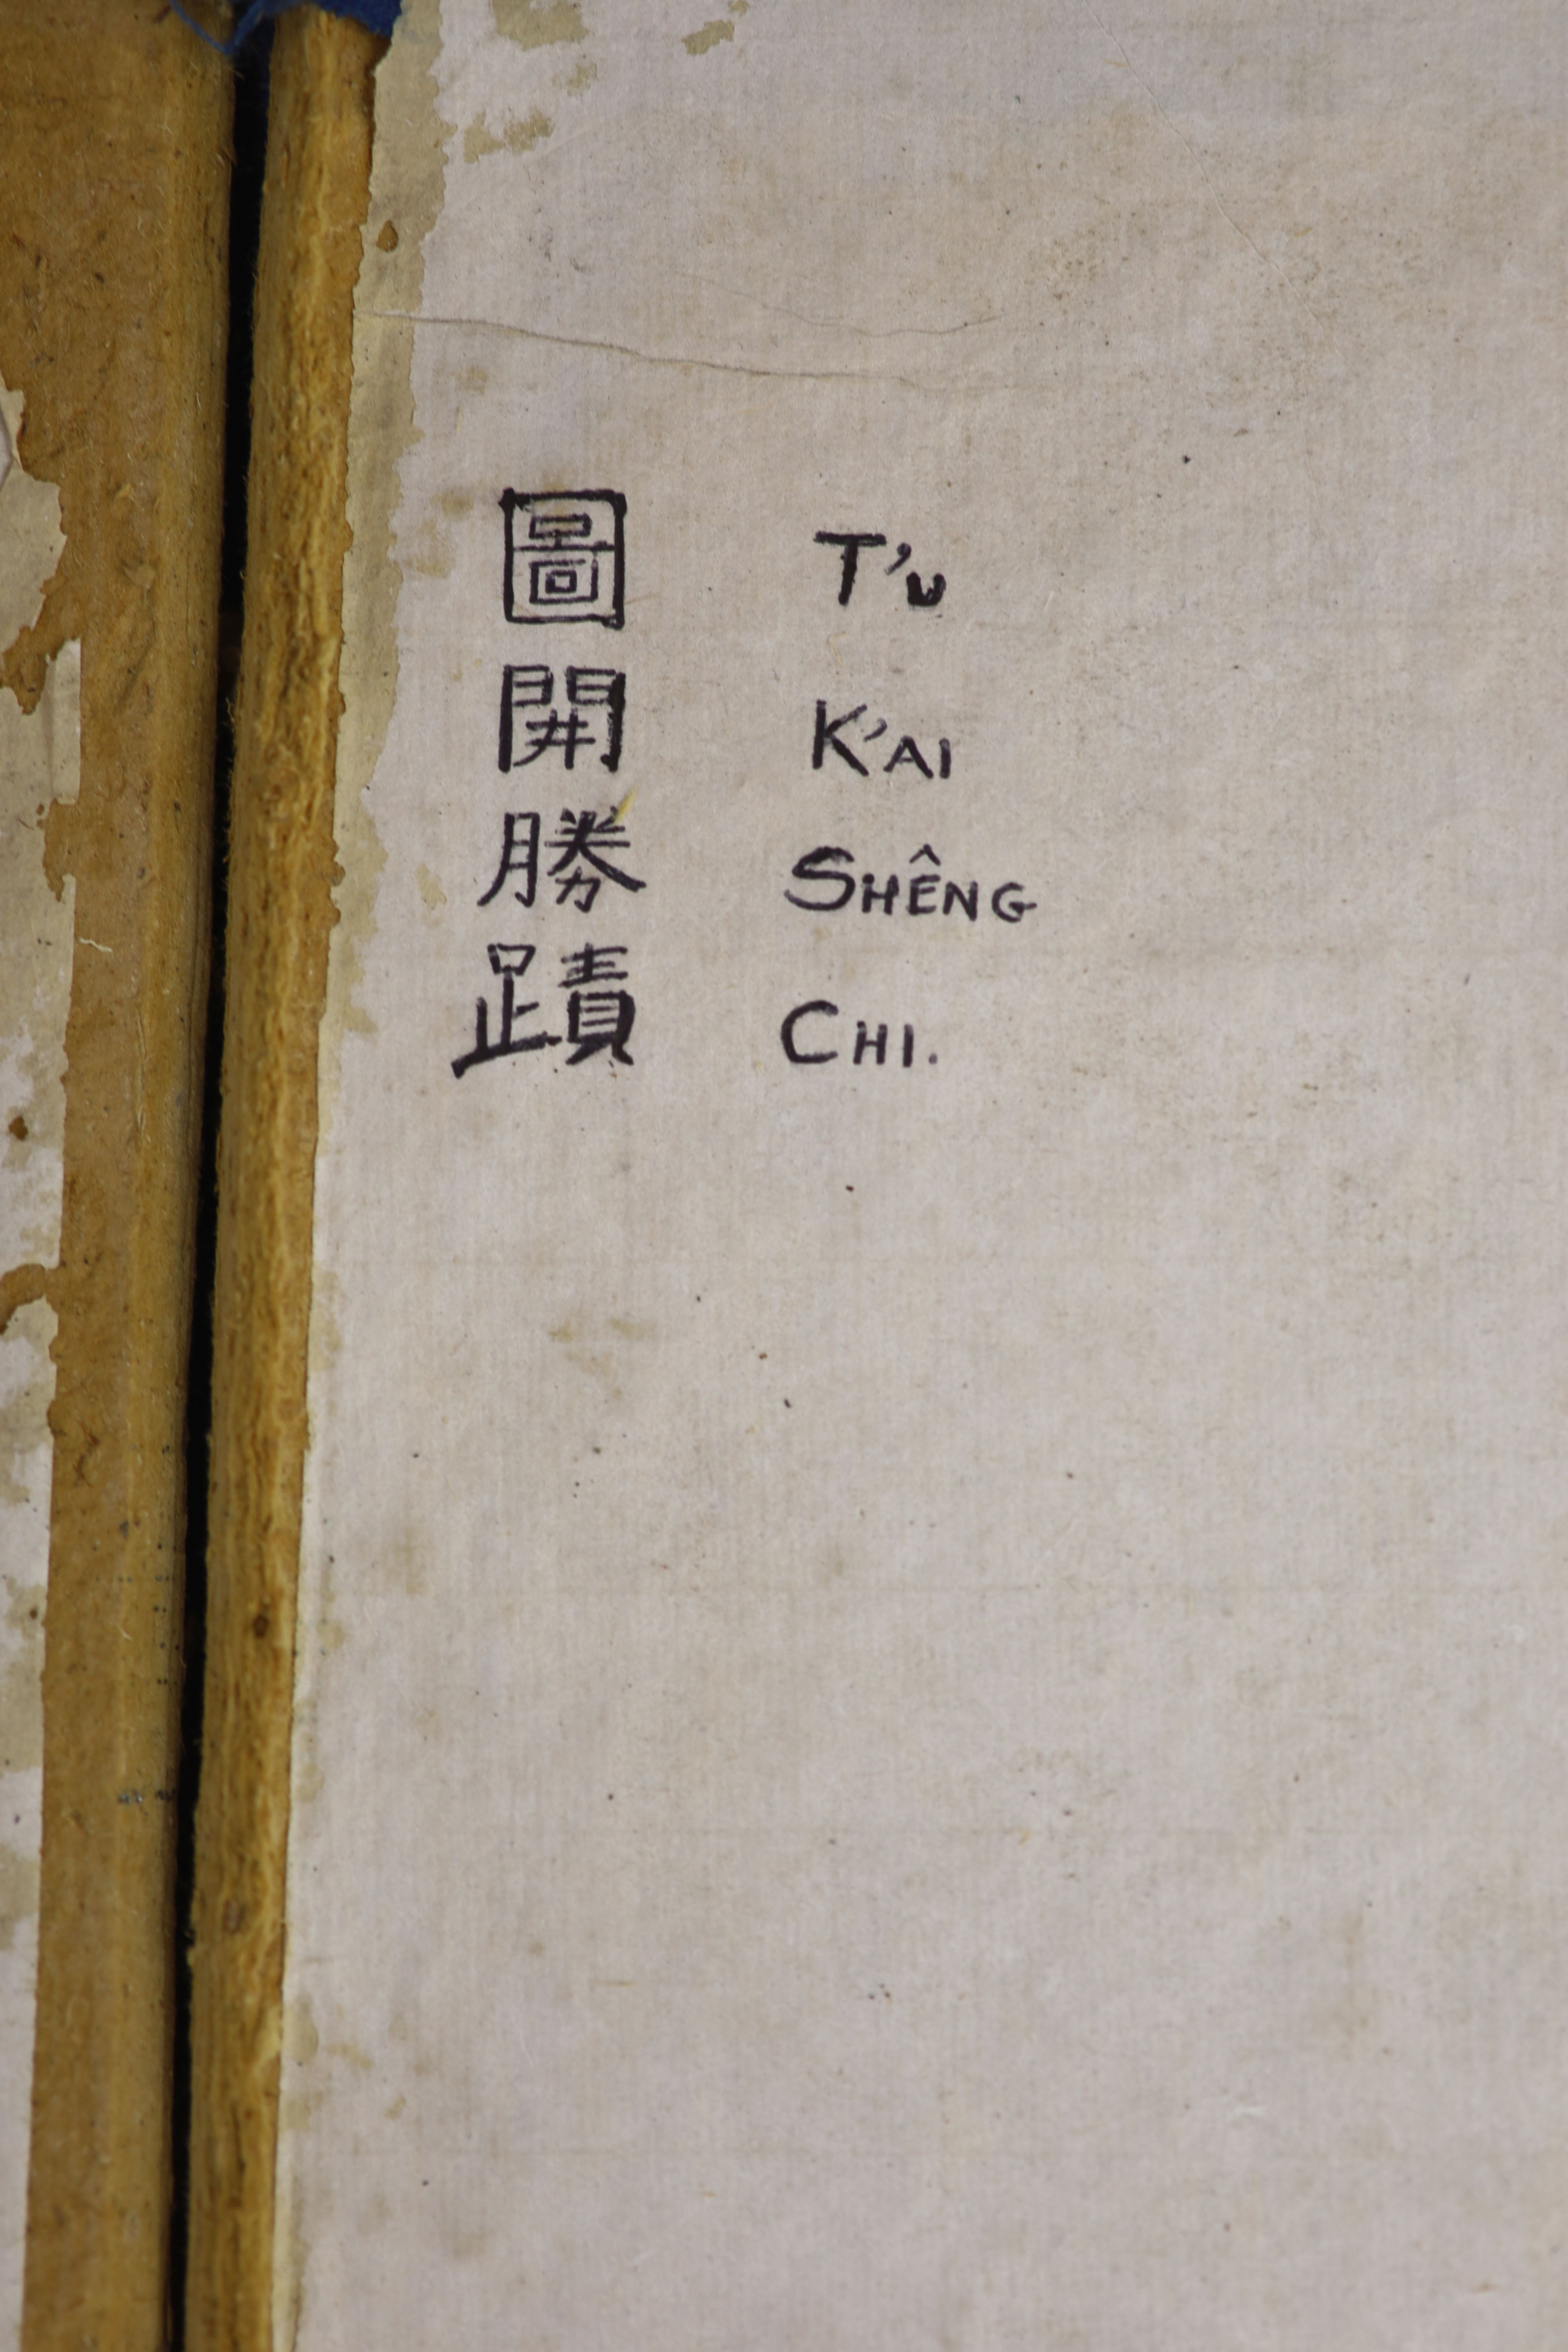 圖 T'u
開 K'AI
勝 SHÊNG
蹟 CHI.